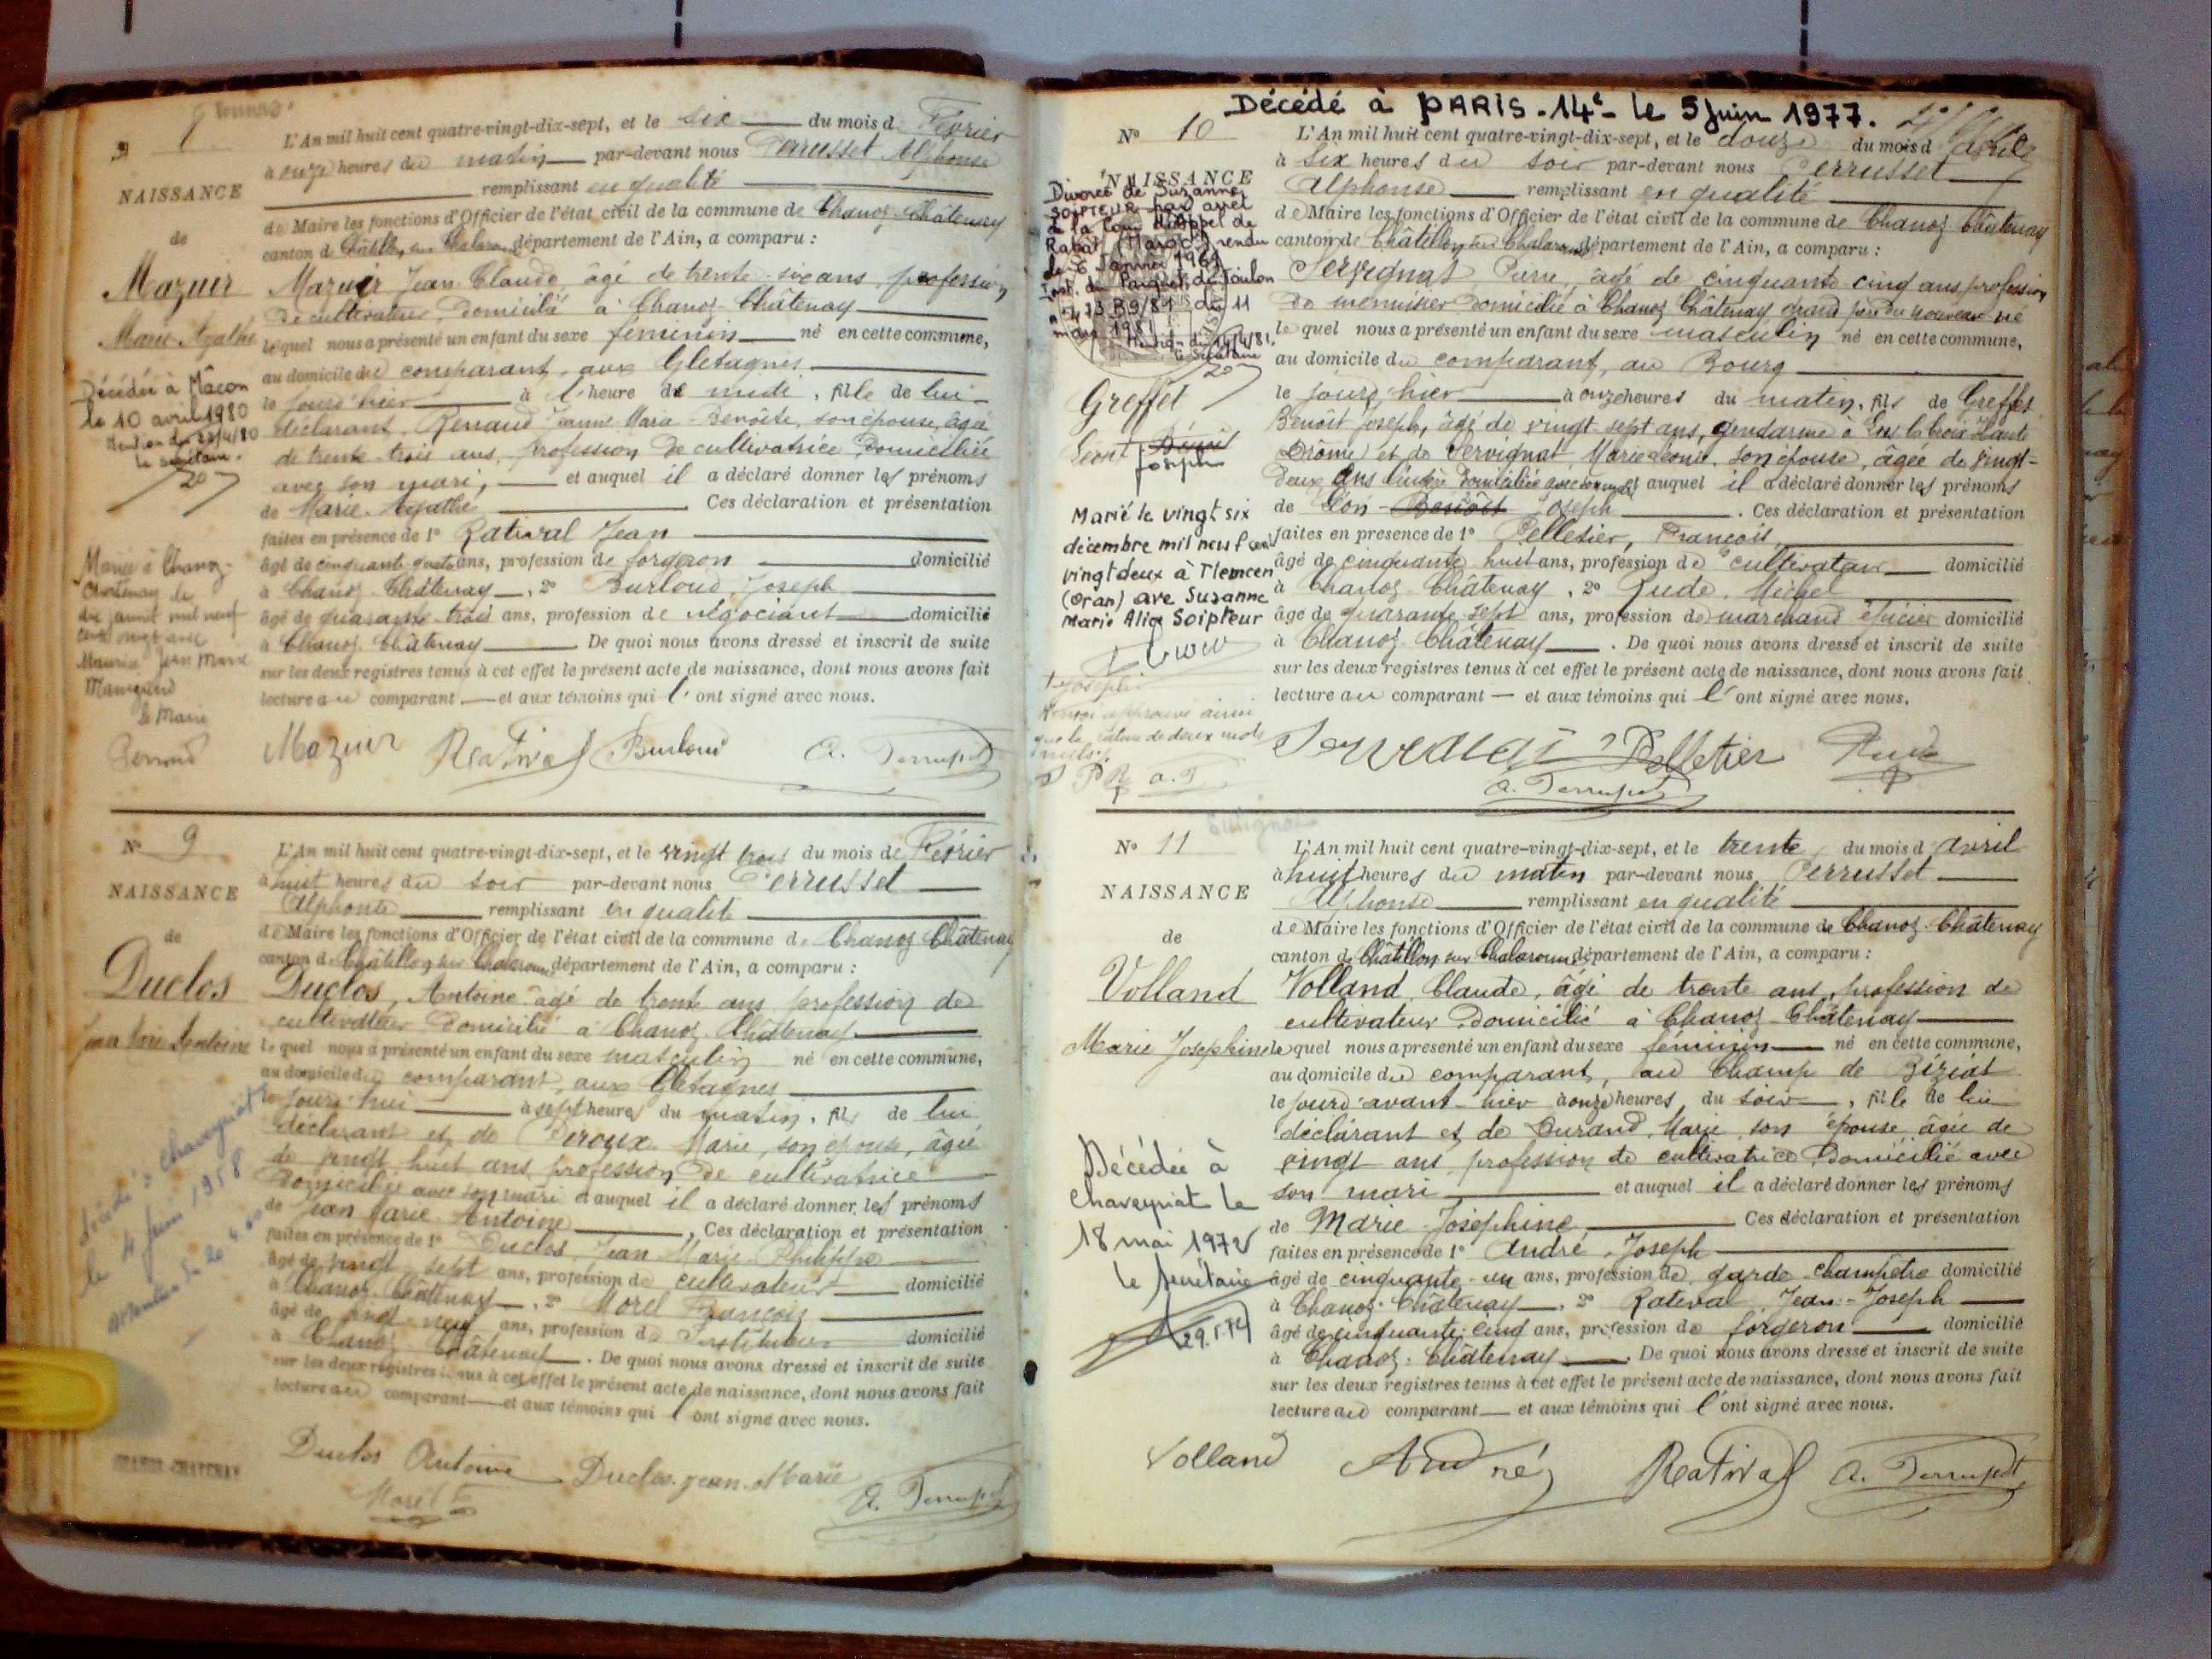 8
NAISSANCE
de
Mazuir
Marie-Agathe
Décédée à Mâcon
le 10 avril 1980
Mention du 22/4/80
le secrétaire.
Mariée à Chanoz-
Chatenay le
mil neuf
cent vingt avec
Maurice Jean Marie
le Maire
L'An mil huit cent quatre-vingt-dix-sept, et le six du mois d Février
à onze heures du matin par-devant nous Perrusset Alphonse
remplissant en qualité
de Maire les fonctions d'Officier de l'état civil de la commune de Chanoz-Châtenay
canton de Châtillon sur Chalaronne département de l'Ain, a comparu :
Mazuir Jean Claude, âgé de trente-six ans, profession
de cultivateur, domicilié à Chanoz-Châtenay
lequel nous a présenté un enfant du sexe féminin né en cette commune,
au domicile du comparant, aux Gletagnes
le jourd'hier à l'heure de midi, fille de lui
déclarant, Renaud Jeanne Marie Benoîte, son épouse, âgée
de trente-trois ans, profession de cultivatrice domiciliée
avec son mari, et auquel il a déclaré donner les prénoms
de Marie-Agathe Ces déclaration et présentation
faites en présence de 1° Rativat Jean
âgé de cinquante quatre ans, profession de forgeron domicilié
à Chanoz-Châtenay, 2° Burloud Joseph
âgé de quarante-trois ans, profession de négociant domicilié
à Chanoz-Châtenay De quoi nous avons dressé et inscrit de suite
sur les deux registres tenus à cet effet le présent acte de naissance, dont nous avons fait
lecture au comparant et aux témoins qui l'ont signé avec nous.
Mazuir Rativat Burloud A. Perrusset
N° 9
NAISSANCE
de
Duclos
Jean Marie Antoine
Décédé à Chaveyriat
le 4 juin 1958
L'An mil huit cent quatre-vingt-dix-sept, et le vingt trois du mois de Février
à huit heures du soir par-devant nous Perrusset
Alphonse remplissant en qualité
de Maire les fonctions d'Officier de l'état civil de la commune de Chanoz Châtenay
canton de Châtillon sur Chalaronne département de l'Ain, a comparu :
Duclos, Antoine âgé de trente ans profession de
cultivateur domicilié à Chanoz-Châtenay
lequel nous a présenté un enfant du sexe masculin né en cette commune,
au domicile du comparant aux Gletagnes
le jourd'hui à sept heures du matin, fils de lui
déclarant et de Peroux Marie, son épouse, âgée
de vingt huit ans profession de cultivatrice
domiciliée avec son mari et auquel il a déclaré donner les prénoms
de Jean Marie Antoine, Ces déclaration et présentation
faites en présence de 1° Duclos Jean Marie Philippe
âgé de vingt sept ans, profession de cultivateur domicilié
à Chanoz-Châtenay, 2° Morel François
âgé de vingt neuf ans, profession de Instituteur domicilié
à Chanoz-Châtenay. De quoi nous avons dressé et inscrit de suite
sur les deux registres tenus à cet effet le présent acte de naissance, dont nous avons fait
lecture au comparant et aux témoins qui l'ont signé avec nous.
CHANOZ-CHATENAY
Duclos Antoine Duclos Jean-Marie
Morel A. Perrusset
Décédé à PARIS-14e-le 5 Juin 1977.
N° 10
NAISSANCE
Divorcé de Suzanne
SOIPTEUR par arrêt
de la Cour d'Appel de
Rabat (Maroc) rendu
le 6 Janvier 1961
Inst. du Parquet de Toulon
n° 473 B9/81 du 11
mars 1981
Mention du 14/4/81.
le Secrétaire
Greffet
Léon Benoît
Joseph
Marié le vingt six
décembre mil neuf cent
vingt deux à Tlemcen
(Oran) ave Suzanne
Marie Alice Soipteur
+ Joseph
Renvoi approuvé ainsi
que la rature de deux mots
nuls.
A. P
L'An mil huit cent quatre-vingt-dix-sept, et le douze du mois d Avril
à six heures du soir par-devant nous Perrusset
Alphonse remplissant en qualité
de Maire les fonctions d'Officier de l'état civil de la commune de Chanoz Châtenay
canton de Châtillon sur Chalaronne département de l'Ain, a comparu :
Servignat Pierre, âgé de cinquante cinq ans, profession
de menuisier domicilié à Chanoz Châtenay grand père du nouveau né
lequel nous a présenté un enfant du sexe masculin né en cette commune,
au domicile du comparant, au Bourg
le jourd'hier à onze heures du matin, fils de Greffet
Benoît Joseph, âgé de vingt sept ans, gendarme à
Drôme) et de Servignat, Marie Léonie, son épouse, âgée de vingt-
deux ans domiciliée avec son mari et auquel il a déclaré donner les prénoms
de Léon-Benoît Joseph. Ces déclaration et présentation
faites en présence de 1° Pelletier, François
âgé de cinquante huit ans, profession de cultivateur domicilié
à Chanoz-Châtenay, 2° Rude, Michel
âgé de quarante sept ans, profession de marchand épicier domicilié
à Chanoz-Châtenay. De quoi nous avons dressé et inscrit de suite
sur les deux registres tenus à cet effet le présent acte de naissance, dont nous avons fait
lecture au comparant et aux témoins qui l'ont signé avec nous.
Servignat Pelletier Rude
A. Perrusset
N° 11
NAISSANCE
de
Volland
Marie Josephine
Décédée à
Chaveyriat le
18 mai 1972
le secrétaire
L'An mil huit cent quatre-vingt-dix-sept, et le trente du mois d'avril
à huit heures du matin par-devant nous Perrusset
Alphonse remplissant en qualité
de Maire les fonctions d'Officier de l'état civil de la commune de Chanoz-Châtenay
canton de Châtillon sur Chalaronne département de l'Ain, a comparu :
Volland Claude, âgé de trente ans, profession de
cultivateur domicilié à Chanoz-Châtenay
lequel nous a présenté un enfant du sexe féminin né en cette commune,
au domicile du comparant, au Champ de Biziat
le jourd'avant-hier à onze heures du soir, fille de lui
déclarant et de Durand, Marie, son épouse âgée de
vingt ans, profession de cultivatrice domiciliée avec
son mari et auquel il a déclaré donner les prénoms
de Marie-Joséphine Ces déclaration et présentation
faites en présence de 1° André, Joseph
âgé de cinquante-un ans, profession de garde champêtre domicilié
à Chanoz-Châtenay, 2° Rateval Jean-Joseph
âgé de cinquante-cinq ans, profession de forgeron domicilié
à Chanoz-Châtenay. De quoi nous avons dressé et inscrit de suite
sur les deux registres tenus à cet effet le présent acte de naissance, dont nous avons fait
lecture au comparant et aux témoins qui l'ont signé avec nous.
Volland André Rativat A. Perrusset